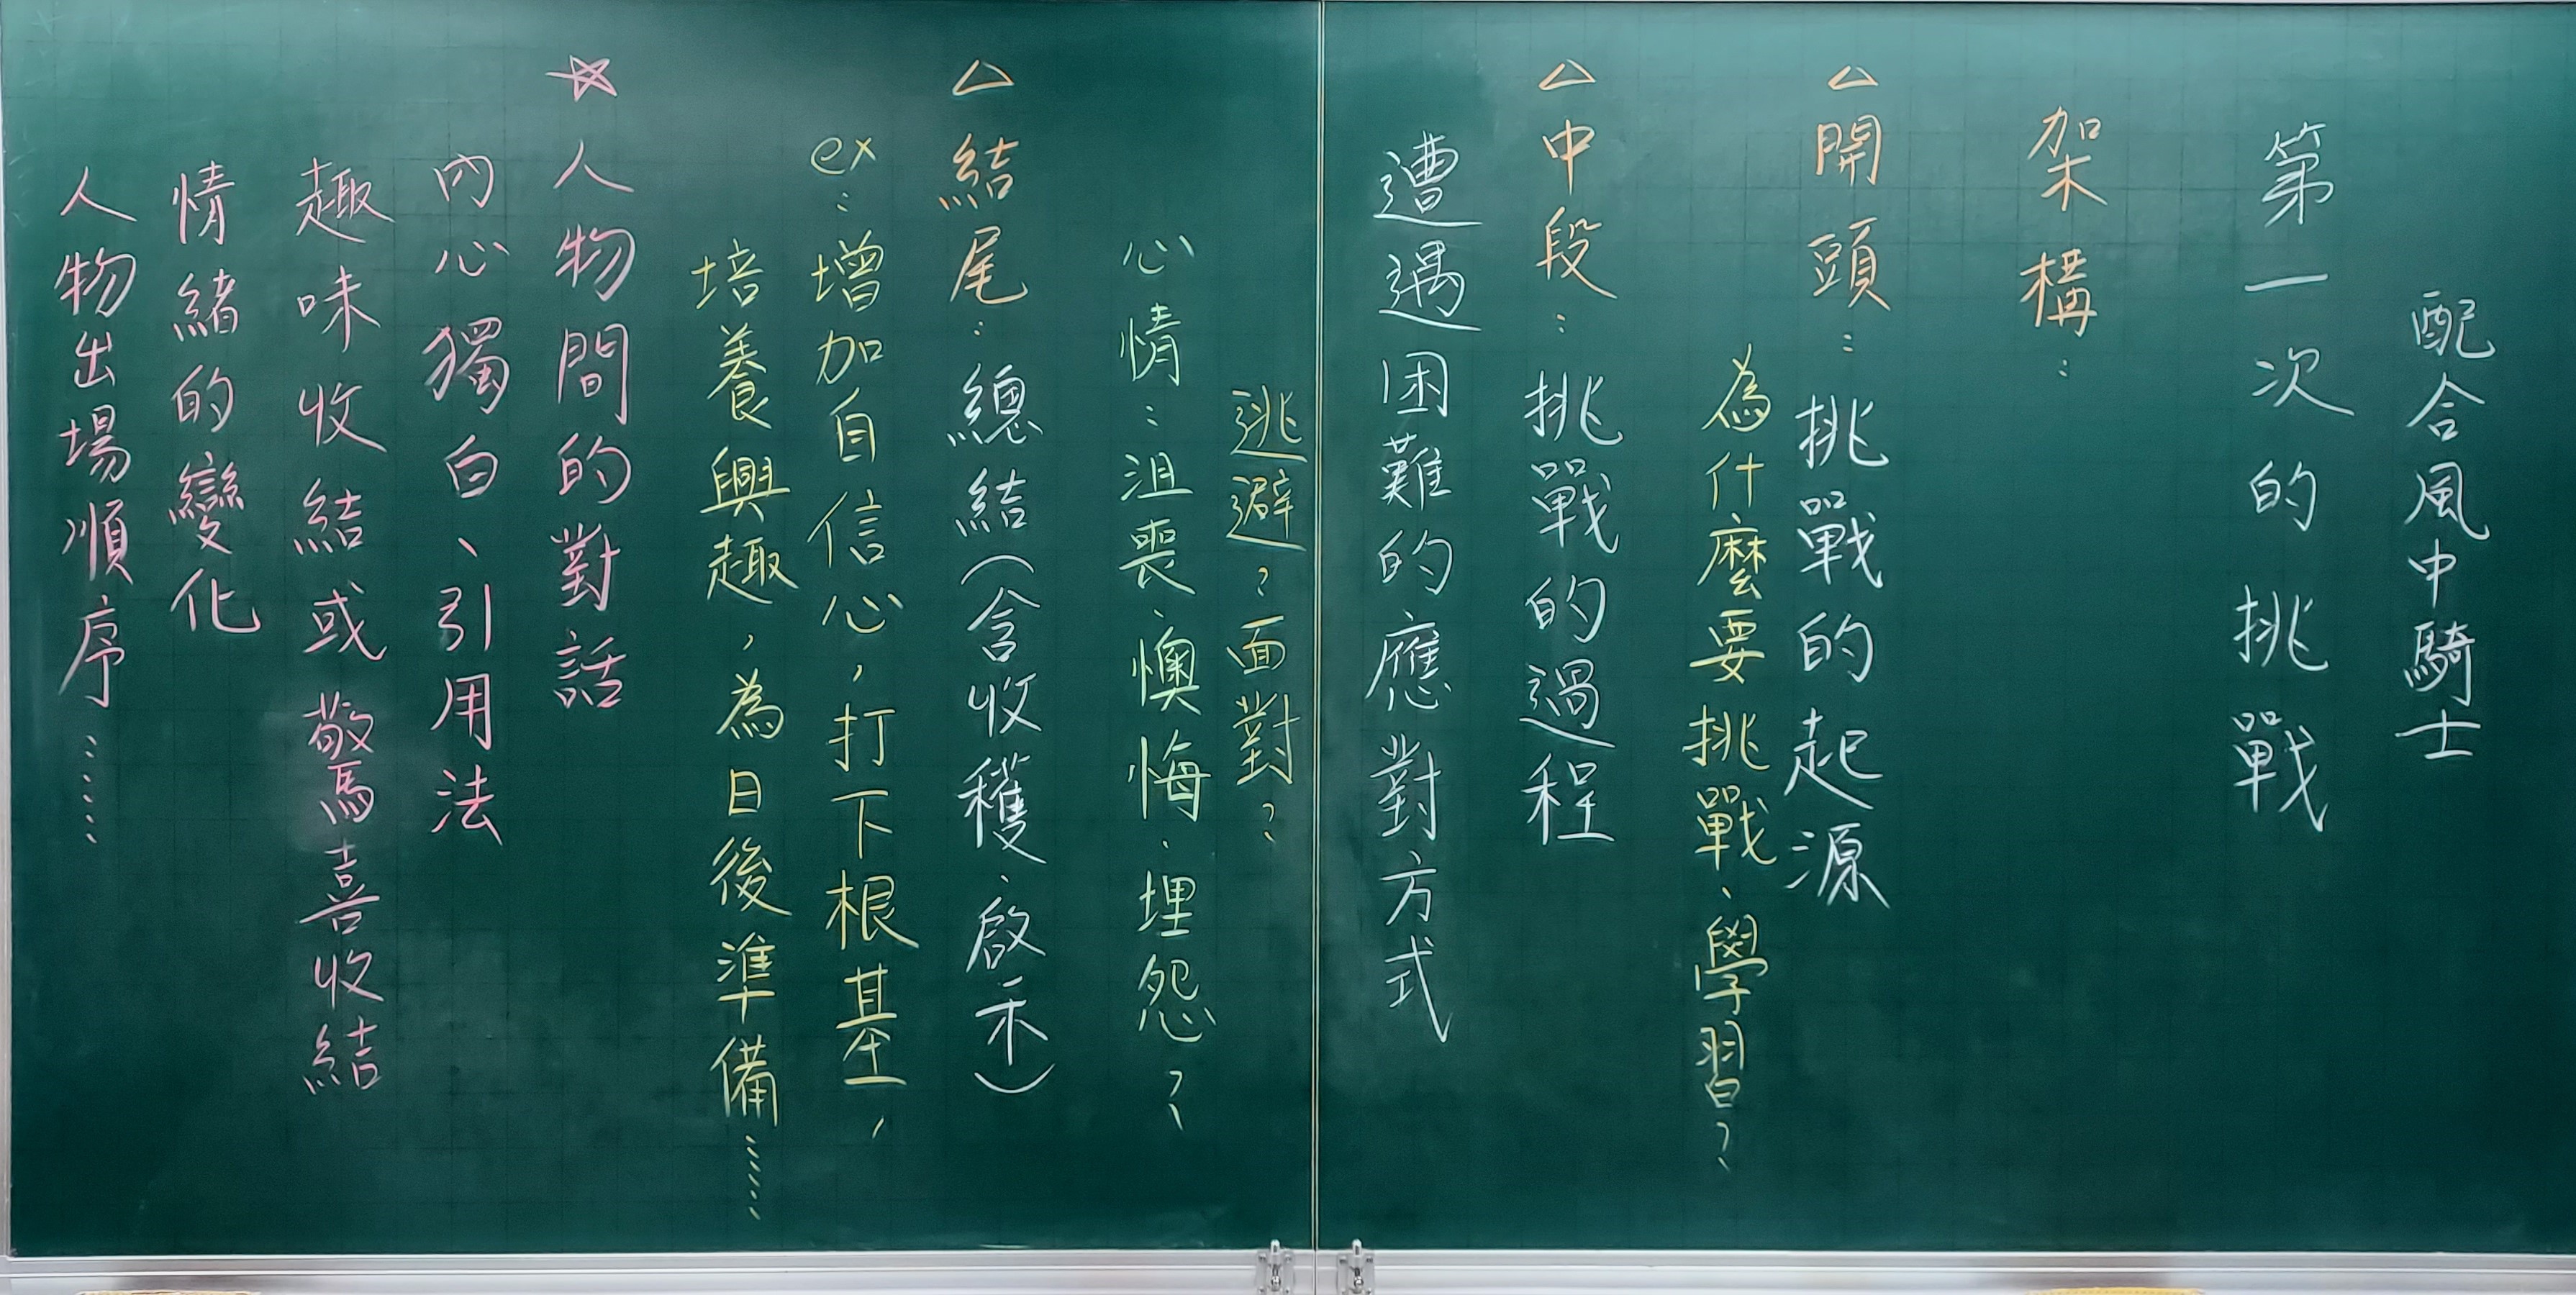 配合風中騎士
第一次的挑戰
架構：
△開頭：挑戰的起源
為什麼要挑戰、學習？
△中段：挑戰的過程
遭遇困難的應對方式
逃避？面對？
心情：沮喪、懊悔、埋怨？
△結尾：總結（含收穫、啟示）
ex：增加自信心，打下根基，
培養興趣，為日後準備……
☆人物間的對話
內心獨白、引用法
趣味收結或驚喜收結
情緒的變化
人物出場順序……